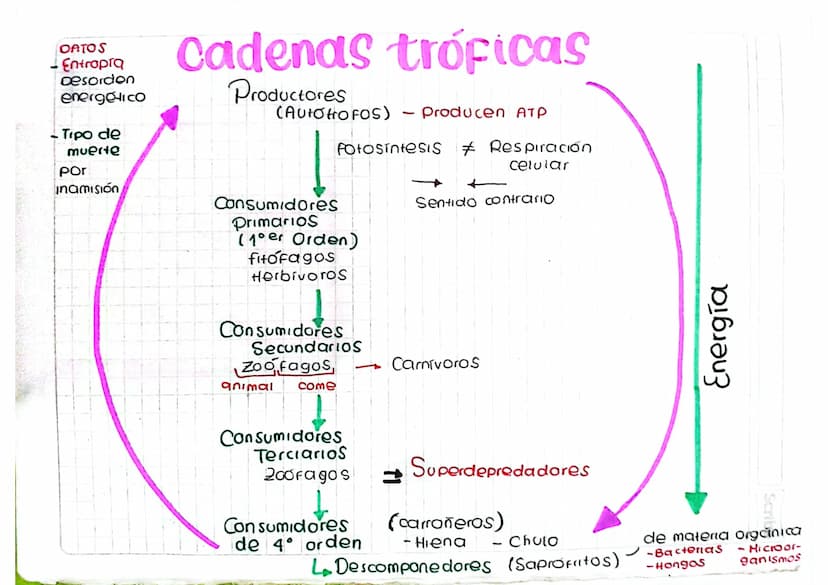 Cadenas tróficas
DATOS
- Entropía
Desorden
energético
- Tipo de
muerte
por
inamisión
Productores
(Autótrofos) - Producen ATP
Fotosíntesis ≠ Respiración
celular
→ ←
Sentido contrario
Consumidores
Primarios
(1°er Orden)
fitófagos
Herbívoros
Consumidores
Secundarios
Zoófagos → Carnívoros
animal come
Consumidores
Terciarios
Zoófagos ⇒ Superdepredadores
Consumidores (carroñeros)
de 4° orden - Hiena - Chulo
↳ Descomponedores (Saprófitos)
de materia orgánica
- Bacterias - Microor-
- Hongos ganismos
Energía